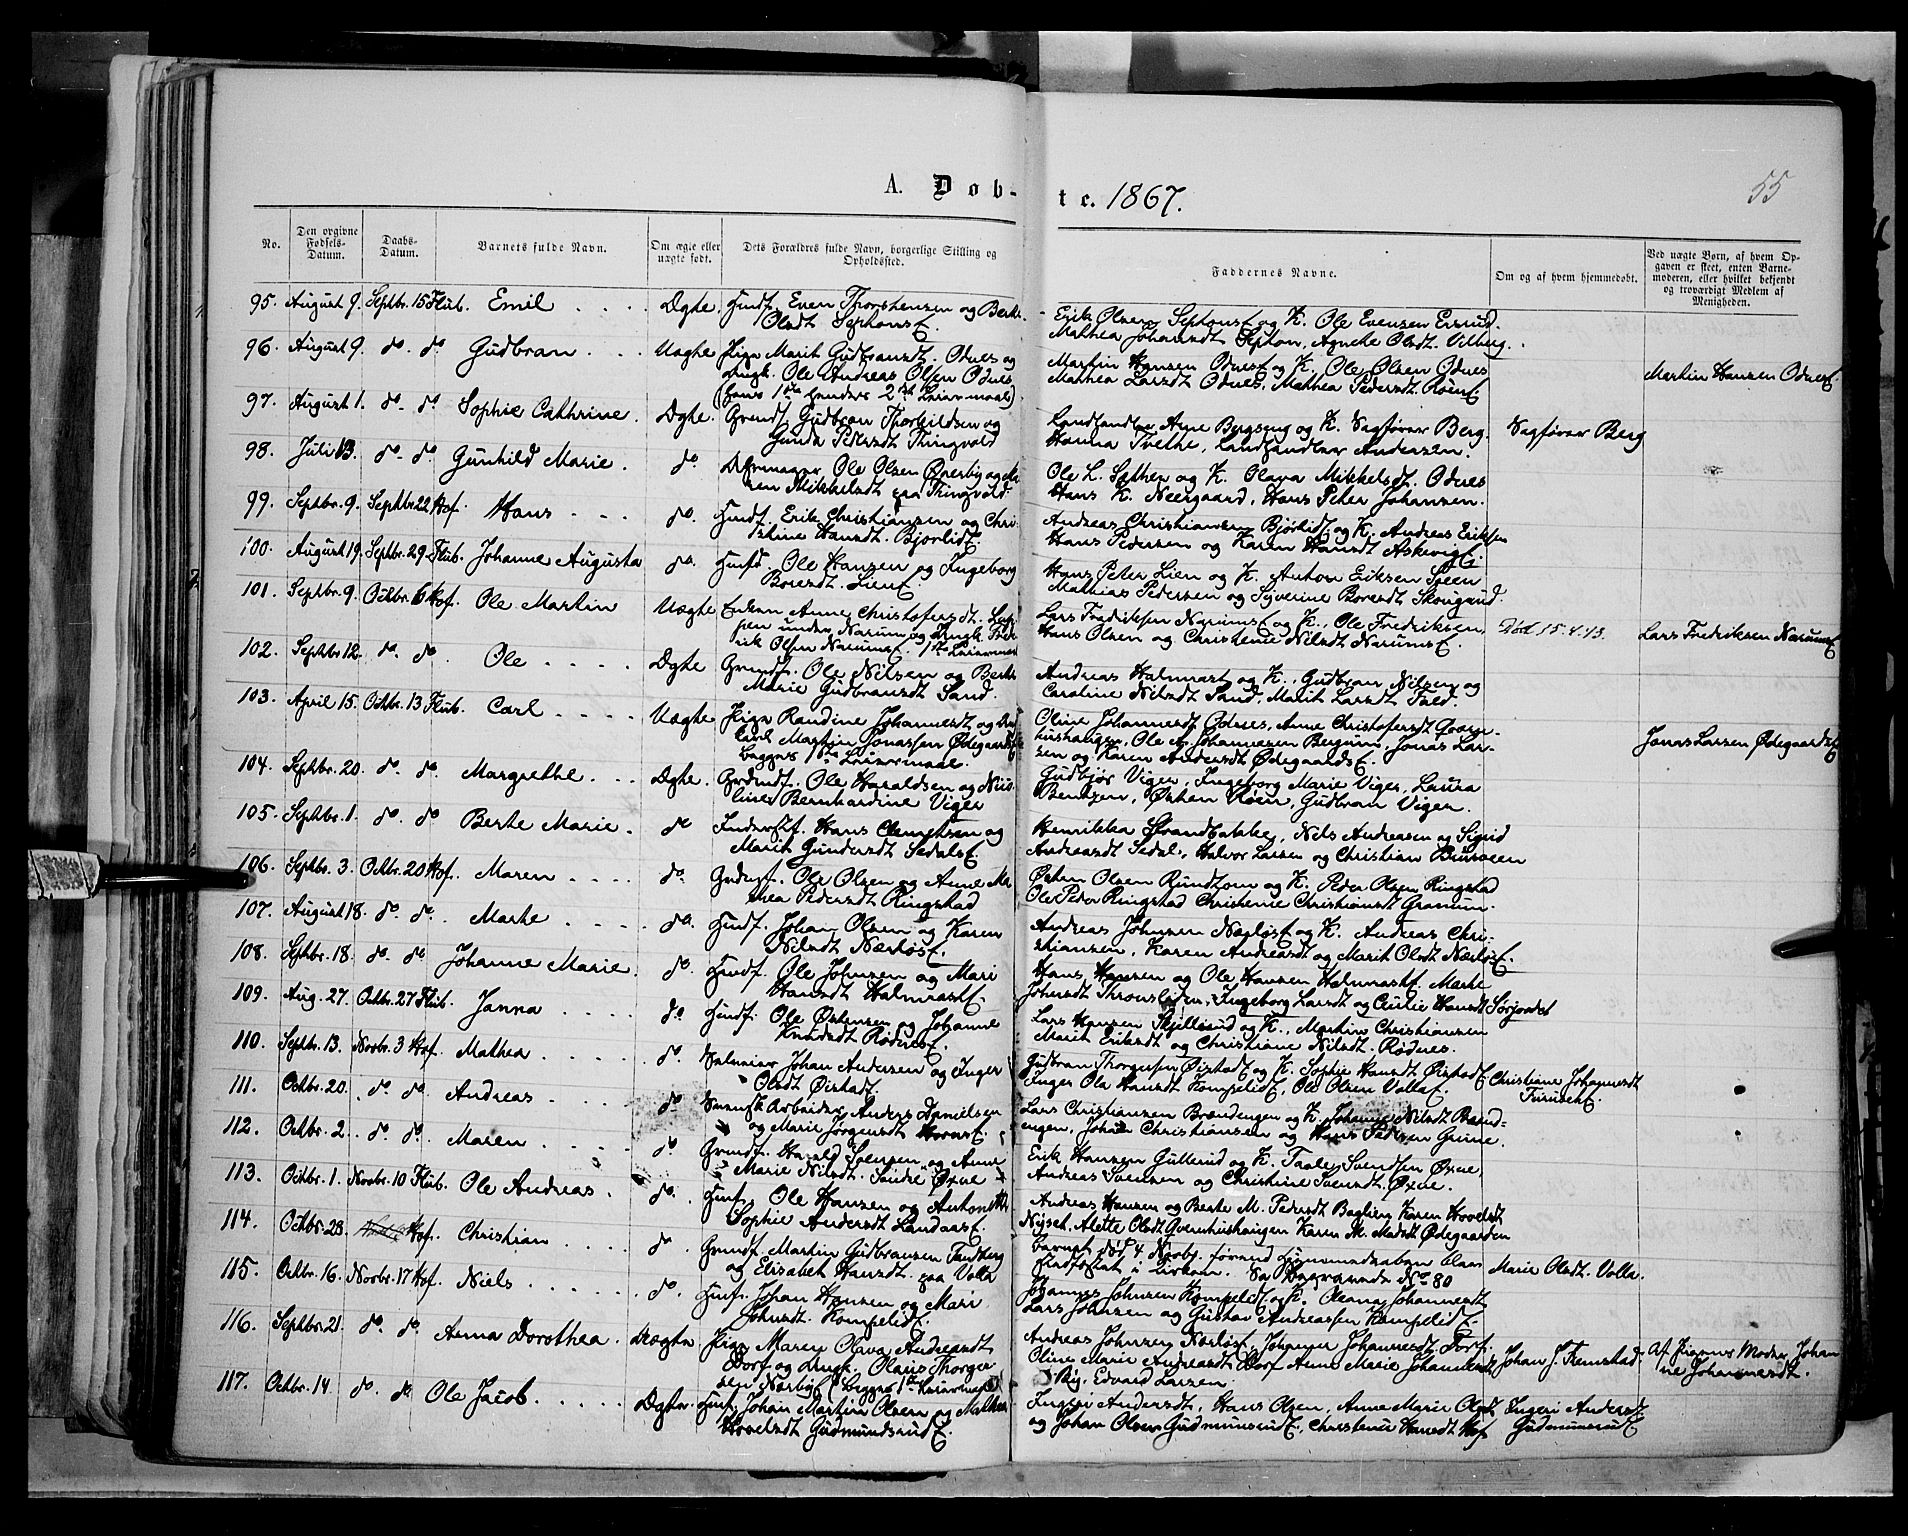 A. Døb-
te. 1867.
55
No.
Den opgivne Fødsels-Datum.
Daabs-Datum.
Barnets fulde Navn.
Om ægte eller uægte født.
Dets Forældres fulde Navn, borgerlige Stilling og Opholdssted.
Faddernes Navne.
Om og af hvem hjemmedøbt.
Ved uægte Børn, af hvem Opgaven er skeet, enten Barnemoderen, eller hvilket bekjendt og troværdigt Medlem af Menigheden.
95. August 9. Septbr. 15 Flub. Emil Ægte Husf. Even Thorstensen og Berthe
Olsdt Septonsf.
Erik Olsen Septonsf og K. Ole Evensen Evsrud.
Mathea Johansdt Septon, Agnethe Olsdt. Vilberg.
96. August 9. do. do. Gudbran Uægte Pige Marit Gudbransdt. Odnes og
Ungk. Ole Andreas Olsen Odnes
(hans 1ste hendes 2det Leiermaal)
Martin Hansen Odnesf og K. Ole Olsen Odnes
Mathea Larsdt Odnes, Mathea Pedersdt. Røenf
Martin Hansen Odnesf
97. August 1. do. do. Sophie Cathrine. Ægte Grundf. Gudbran Thorkildsen og
Gunda Pedersdt Thingvold
Landhandler Arne Bergseng og K. Sagfører Berg.
Hanna Tvethe, Landhandler Andersen.
Sagfører Berg
98. Juli 13. do. do. Gunhild Marie. do. Ole Olsen Øverby og
Mikkelsdt paa Thingvold
Ole L. Sethen og K. Olava Mikkelsdt. Odnes
Hans K. Neergaard, Hans Peter Johansen.
99. Septbr. 9. Septbr. 22 Hof. Hans do. Husf. Erik Christiansen og Chri-
stine Hansdt. Bjørlidf.
Andreas Christiansen Bjørlidf og K. Andreas Eriksen
Hans Pedersen og Karen Hansdt Askevigf.
100. August 19. Septbr. 29. Flub. Johanne Augusta do. Husf. Ole Hansen og Ingeborg
Boresdt Lienf.
Hans Peter Lien og K. Anton Eriksen Soeen
Mathias Pedersen og Syverine Boresdt Skougrud.
101. Septbr. 9. Octbr. 6 Hof. Ole Martin Uægte Enken Anne Christofersdt.
under Narum og Ungk. Fred-
rik Olsen Narumsf. 1ste Leiermaal
Lars Fredriksen Narumsf og K., Ole Fredriksen,
Hans Olsen og Christence Nilsdt Narumsf.
Død. 15.4.43.
Lars Fredriksen Narumsf
102. Septbr. 12. do. do. Ole Ægte Grundf. Ole Nilsen og Berthe
Marie Gudbransdt Sand.
Andreas Halmrast og K., Gudbran Nilsen og
Caroline Nilsdt Sand, Marit Larsdt Fald.
103. April 15. Octbr. 13 Flub. Carl Uægte Pige Randine Johannesdt og
Martin Jonassen Ødegaardsf
begges 1ste Leiermaal.
Oline Johannesdt Odnes, Anne Christofersdt Qværn-
hushaugen, Ole A. Johannesen Bergum, Jonas Lar-
sen og Karen Andersdt Ødegaardsf.
Jonas Larsen Ødegaardsf
104. Septbr. 20. do. do. Margrethe. Ægte. Grundf. Ole Haraldsen og
Bernhardine Viger
Gudbjør Viger, Ingeborg Marie Viger, Laura
Bentzen, Østen Roen, Gudbran Viger.
105. Septbr. 1. do. do Berte Marie. do Inderstf. Hans Clemetsen og
Marit Gundersdt Sedalsf.
Henrikka Strandbakke, Nils Andreasen og Sigrid
Andreasdt Sedal, Halvor Larsen og Christian Bruveen
106. Septbr. 3. Octbr. 20 Hof. Maren do. Grdmf. Ole Olsen og Anne Ma
thea Pedersdt Ringstad
Østen Olsen Rundtom og K. Peder Olsen Ringstad
Ole Peder Ringstad Christence Christiansdt Granum.
107. August 18. do. do. Marte do. Husf. Johan Olsen og Karen
Nilsdt Nærløsf.
Andreas Johnsen Nærløsf og K. Andreas Chri-
stiansen, Karen Andreasdt og Marit Olsdt Nærløsf.
108. Septbr. 18. do. do. Johanne Marie. do. Husf. Ole Johnsen og Mari
Hansdt Halmrastf.
Hans Hansen og Ole Hansen Halmrastf. Marte
Johnsdt Thronsliden, Ingeborg Larsdt og Cecilie Hansdt Sørjordet
109. Aug. 27. Octbr. 27 Flub. Janna do Husf. Ole Østensen og Johanne
Knudsdt Rødnesf.
Lars Hansen Skjellerud og K., Martin Christiansen
Marit Eriksdt og Christiane Nilsdt. Rødnes.
110. Septbr. 13. Novbr. 3 Hof. Mathea do. Johan Andersen og Inger
Olsdt Øistad
Gudbran Thorgersen Øistad og K. Sophie Hansdt Øistad
Inger Ole Hansdt Kompelidf, Ole Olsen Vollaf.
Christiane Johannesdt
111. Octbr. 20. do. do. Andreas do. Svensk Arbeider Anders Danielsen
og Marie Jørgensdt Hornsf.
Lars Christiansen Brændengen og K. Johanne Nilsdt Brænd-
engen, Johan Christiansen og Hans Pedersen Grime.
112. Octbr. 2. do. do. Maren do Grundf. Harald Svensen og Anne
Marie Nilsdt. Søndre Øxne
Erik Hansen Gullerud og K. Taale Svendsen Øxne,
Andreas Svensen og Christine Svensdt. Øxne.
113. Octbr. 1. Novbr. 10 Flub. Ole Andreas. do. Husf. Ole Hansen og Antonette
Sophie Andersdt Landaasf.
Andreas Hansen og Berte M. Pedersdt Bagberg Karen Hovelsdt
Nyset, Alette Olsdt Qvernhushaugen Karen M. Madsdt Ødegaarden
114. Octbr. 28. Hof. Christian do. Grundf. Martin Gudbransen Tandberg
og Elisabet Hansdt. paa Volla
Barnet død 4 Novbr. førend Hjemmedaaben blev
stadfæstet i Kirken. Se Begravede No 80
Marie Olsdt. Volla.
115. Octbr. 16. Novbr. 17 Hof. Niels do. Husf. Johan Hansen og Mari
Johnsdt. Kompelidf.
Johannes Johnsen Kompelidf og K. Oleana Johannesdt
Lars Johnsen og Gustav Andreassen Kompelidf.
116. Septbr. 21. do. do. Anna Dorothea. Uægte Pige Maren Olava Andreasdt
Dorf og Ungk. Olaus Thorger
sen Nærbyf (begges 1ste Leiermaal)
Andreas Johnsen Nærløsf, Johannes Johannesdt Dorf.
Oline Marie Andreasdt Dorf Anne Marie Johannesdt
Big. Edvard Larsen.
Johan J. Fremstad
Af Pigens Moder Johan
ne Johannesdt.
117. Octbr. 14 do. do. Ole Jacob. Ægte Husf. Johan Martin Olsen og Mathea
Hovelsdt Gudmundsrudf.
Ingeri Andersdt, Hans Olsen, Anne Marie Olsdt
og Johan Olsen Gudmunsrudf, Christence Hansdt Hof
Ingeri Andersdt
Gudmunsrudf